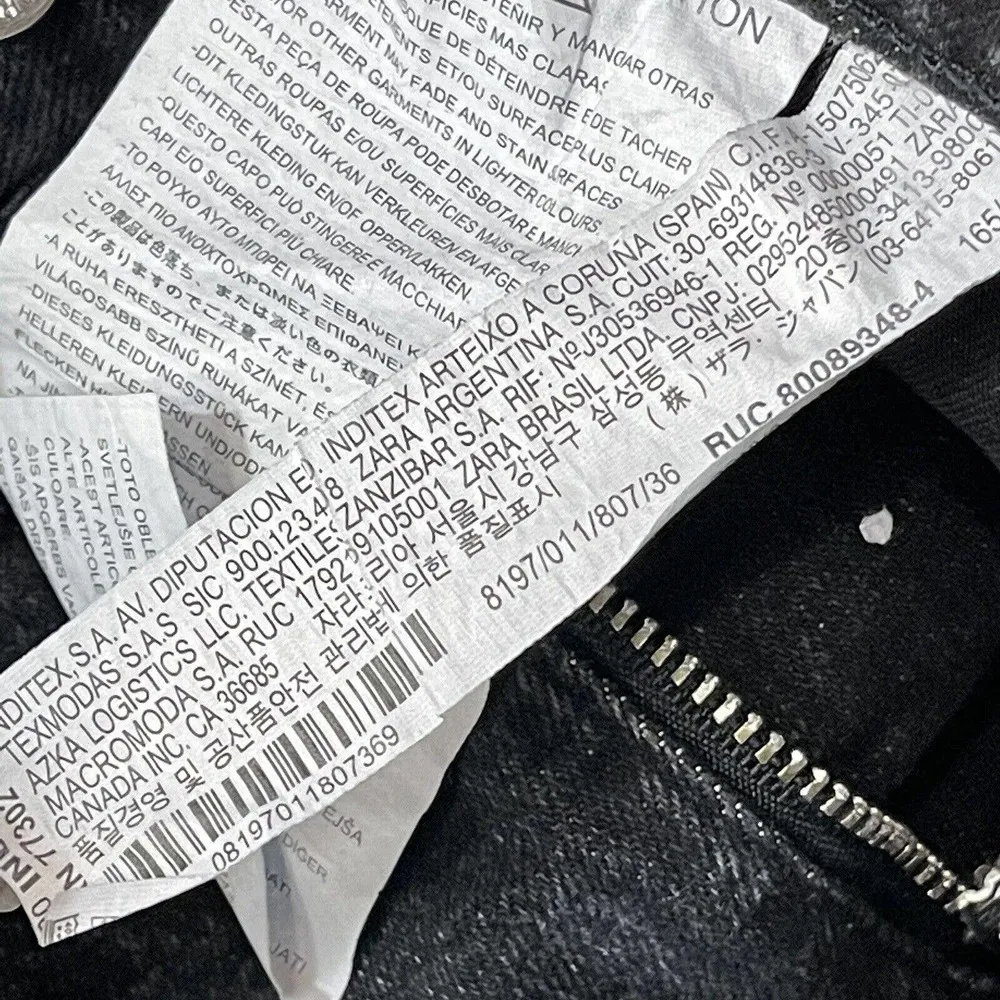 TENIR Y MANCHAR OTRAS
FICIES MAS CLARAS
QUE DE DÉTEINDRE
ENTS ET/OU SURFACE PLUS CLAIRS
DE TACHER
ARMENT MAY FADE AND STAIN
OR OTHER GARMENTS IN LIGHTER COLOURS.
ESTA PEÇA DE ROUPA PODE DESBOTAR E MANCH
OUTRAS ROUPAS E/OU SUPERFÍCIES MAIS CLAR
-DIT KLEDINGSTUK KAN VERKLEUREN EN AFGE
LICHTERE KLEDING EN/OF OPPERVLAKKEN.
-QUESTO CAPO PUÒ STINGERE E MACCHIAR
CAPI E/O SUPERFICI PIÙ CHIARE.
-ΤΟ ΡΟΥΧΟ ΑΥΤΟ ΜΠΟΡΕΙ ΝΑ ΞΕΒΑΨΕΙ Κ
ΑΛΛΕΣ ΠΙΟ ΑΝΟΙΚΤΟΧΡΩΜΕΣ ΕΠΙΦΑΝΕ
-この製品は色落ち または淡い色の衣類
ことがありますのでご注意ください。
-A RUHA ERESZTHETI A SZÍNÉT, ÉS
VILÁGOSABB SZÍNŰ RUHÁKAT VA
-DIESES KLEIDUNGSSTÜCK KAN
HELLEREN KLEI ERN UND/ODE
FLECKEN
NA JI
-TOTO OBLE
SVETLEJŠIE
-ACEST ARTICO
ALTE ARTICOLE
CULOARE
-ŠIS APĢĒRBS VA
GAIŠAS DR
INDITEX, S.A. AV. DIPUTACION E INDITEX ARTEIXO A CORUÑA (SPAIN) C.I.F. A15075062
TEXMODAS S.A.S SIC 900.123.408 ZARA ARGENTINA S.A. CUIT: 30-69314836-3 V-345-0
AZKA LOGISTICS LLC, TEXTILES ZANZIBAR S.A. RIF: Nº J30536946-1 REG. Nº 0000051 TI-0
MACROMODA S.A. RUC 1792 9105001 ZARA BRASIL LTDA. CNPJ: 02952485000491 ZARA
CANADA INC. CA 36685 자라 리아 서울시 강남구 삼성동 무역센터 20층 02-3413-9800
품질경영 및 공산품안전 관리법에 의한 품질표시 (株) ザラ・ジャパン (03-6415-8061
165
8197/011/807/36 RUC 80089348-4
08197011807369
77302
EJŠA
DİĞER
JATI